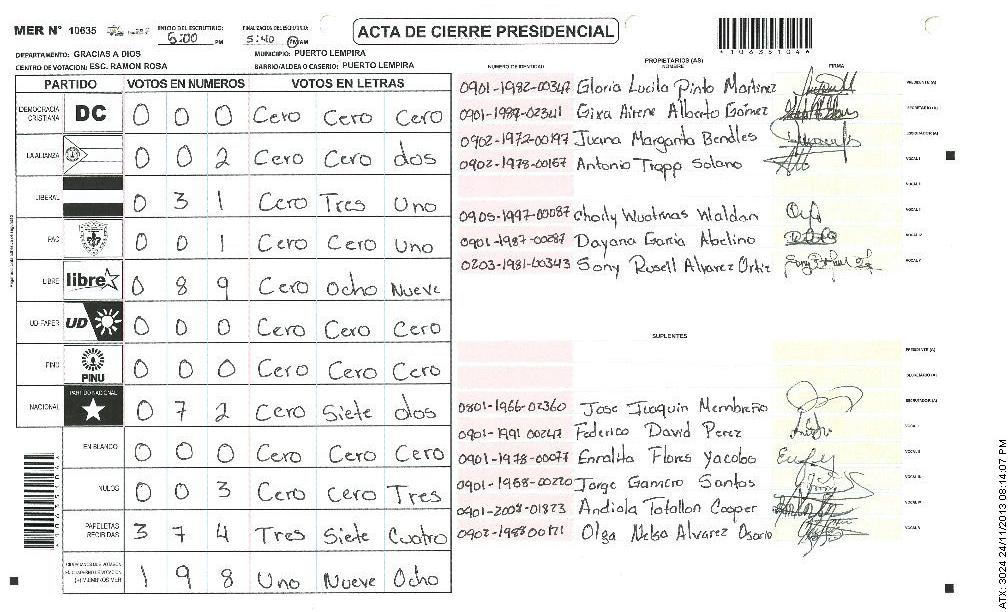 MER N° 10635
INICIO DEL ESCRUTINIO: 5:00 PM
FINALIZACIÓN DEL ESCRUTINIO: 5:40 PM AM
ACTA DE CIERRE PRESIDENCIAL
DEPARTAMENTO: GRACIAS A DIOS
MUNICIPIO: PUERTO LEMPIRA
CENTRO DE VOTACION: ESC. RAMON ROSA
BARRIO/ALDEA O CASERIO: PUERTO LEMPIRA
PARTIDO VOTOS EN NUMEROS VOTOS EN LETRAS
DEMOCRACIA CRISTIANA DC 0 0 0 Cero Cero Cero
LA ALIANZA 0 0 2 Cero Cero dos
LIBERAL 0 3 1 Cero Tres Uno
PAC 0 0 1 Cero Cero Uno
LIBRE libre 0 8 9 Cero Ocho Nueve
UD-FAPER UD 0 0 0 Cero Cero Cero
PINU PINU 0 0 0 Cero Cero Cero
NACIONAL PARTIDO NACIONAL 0 7 2 Cero Siete dos
EN BLANCO 0 0 0 Cero Cero Cero
NULOS 0 0 3 Cero Cero Tres
PAPELETAS RECIBIDAS 3 7 4 Tres Siete Cuatro
1 9 8 Uno Nueve Ocho
PROPIETARIOS (AS)
NUMERO DE IDENTIDAD NOMBRE FIRMA
0901-1982-00347 Gloria Lucila Pinto Martinez PRESIDENTE (A)
0901-1989-02341 Gixa Airene Alberto Gómez SECRETARIO (A)
0902-1972-00197 Juana Margarita Bendles ESCRUTADOR (A)
0902-1978-00167 Antonio Trapp Solano VOCAL I
0905-1997-00087 Charly Wuatmas Waldan
0901-1987-00287 Dayana Garcia Abelino
0203-1981-00343 Sony Rusell Alvarez Ortiz VOCAL V
SUPLENTES
PRESIDENTE (A)
SECRETARIO (A)
0801-1966-02360 Jose Juaquin Membreño
0901-1991 00247 Federico David Perez
0901-1978-00077 Enralita Flores Yacobo
0901-1968-00220 Jorge Gamero Santos
0901-2008-01823 Andiola Tatallon Cooper
0902-1988 00171 Olga Nelsa Alvarez Osorio
ATX: 3024 24/11/2013 08:14:07 PM